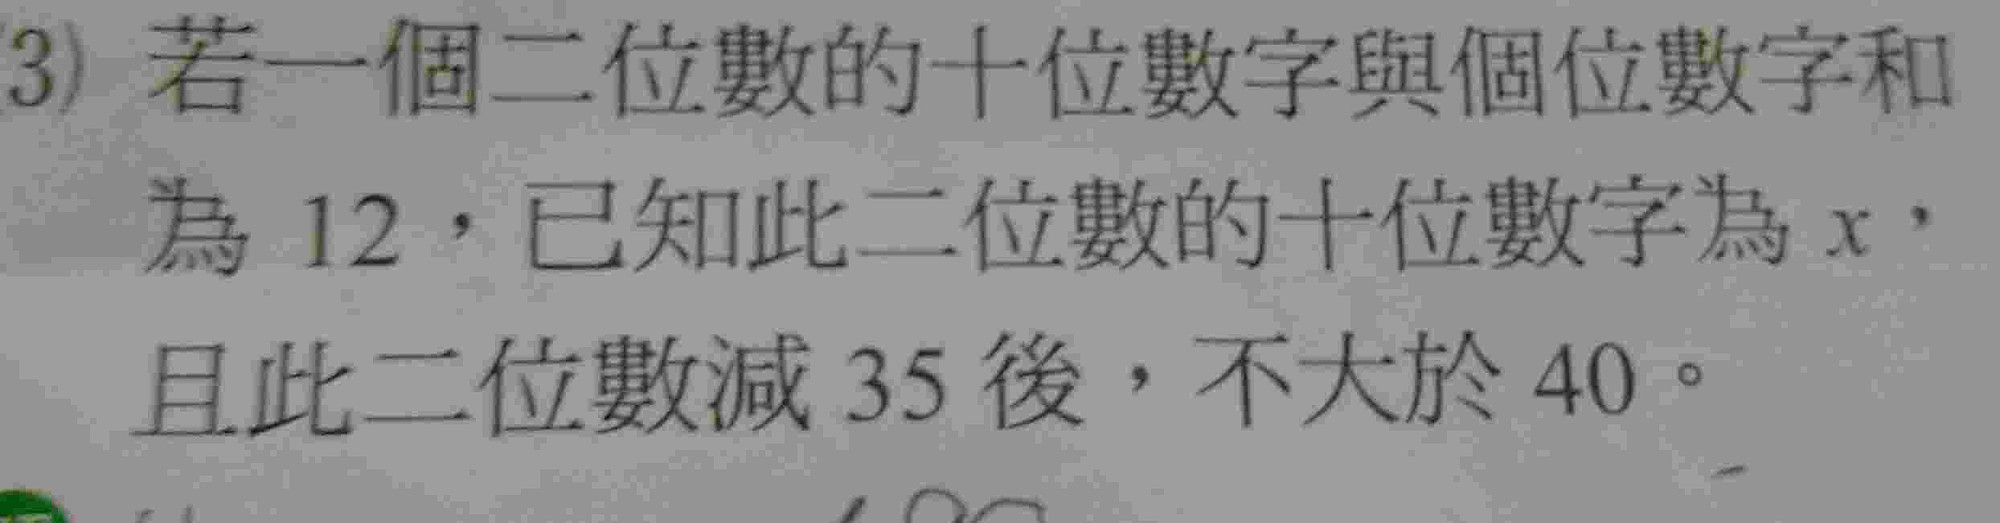 3) 若一個二位數的十位數字與個位數字和
為 12，已知此二位數的十位數字為 x，
且此二位數減 35 後，不大於 40。